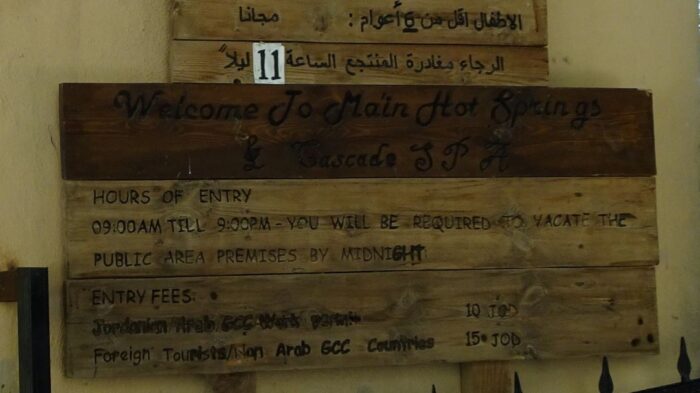 الاطفال اقل من 6 أعوام : مجانا
الرجاء مغادرة المنتجع الساعة 11 ليلاً
Welcome To Ma'in Hot Springs
& Cascade SPA
HOURS OF ENTRY
09:00AM TILL 9:00PM - YOU WILL BE REQUIRED TO VACATE THE
PUBLIC AREA PREMISES BY MIDNIGHT
ENTRY FEES:
Jordanian Arab GCC Work Permit 10 JOD
Foreign Tourists/Non Arab GCC Countries 15 JOD